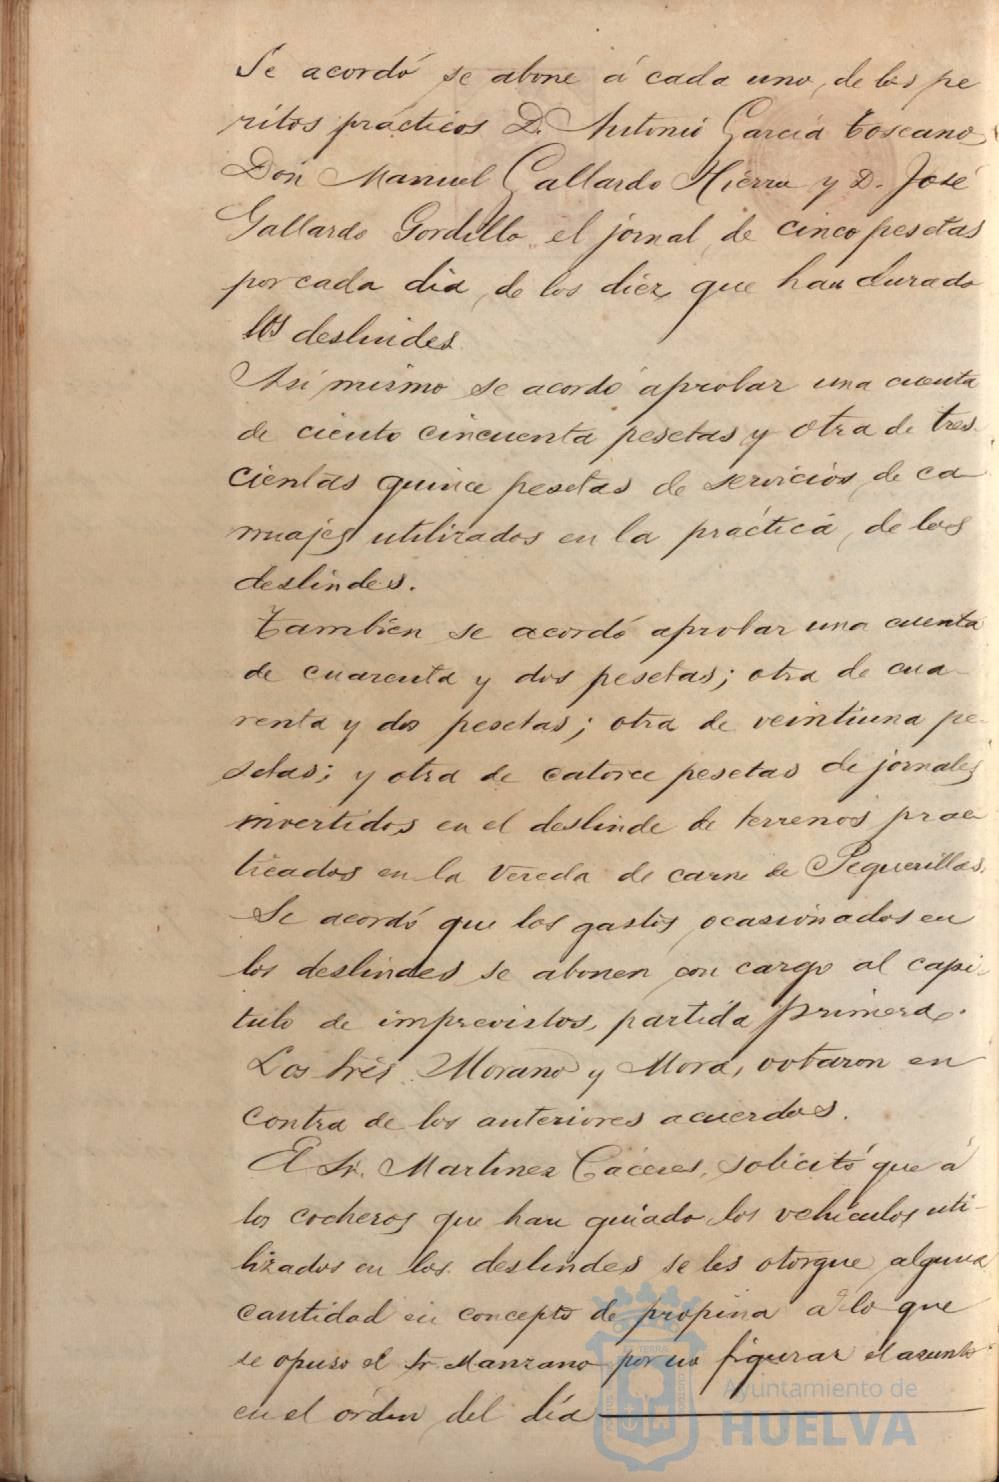 Se acordó se abone á cada uno, de los pe
ritos prácticos D. Antonio García Toscano,
Don Manuel Gallardo Hierro y D. José
Gallardo Gordillo el jornal de cinco pesetas
por cada dia, de los diez, que han durado
los deslindes.
Así mismo se acordó aprobar una cuenta
de ciento cincuenta pesetas y otra de tres
cientas quince pesetas de servicios de ca
rruajes utilizados en la práctica, de los
deslindes.
Tambien se acordó aprobar una cuenta
de cuarenta y dos pesetas; otra de cua-
renta y dos pesetas; otra de veintiuna pe-
setas; y otra de catorce pesetas de jornales
invertidos en el deslinde de terrenos prac
ticados en la Vereda de carne de Peguerillas.
Se acordó que los gastos ocasionados en
los deslindes se abonen con cargo al capi-
tulo de imprevistos, partida primera.
Los Sres. Morano y Mora, votaron en
contra de los anteriores acuerdos.
El Sr. Martinez Cáceres, solicitó que á
los cocheros que han guiado los vehículos uti-
lizados en los deslindes se les otorgue alguna
cantidad en concepto de propina a lo que
se opuso el Sr. Manzano por no figurar el asunto
en el órden del día
Ayuntamiento de
HUELVA